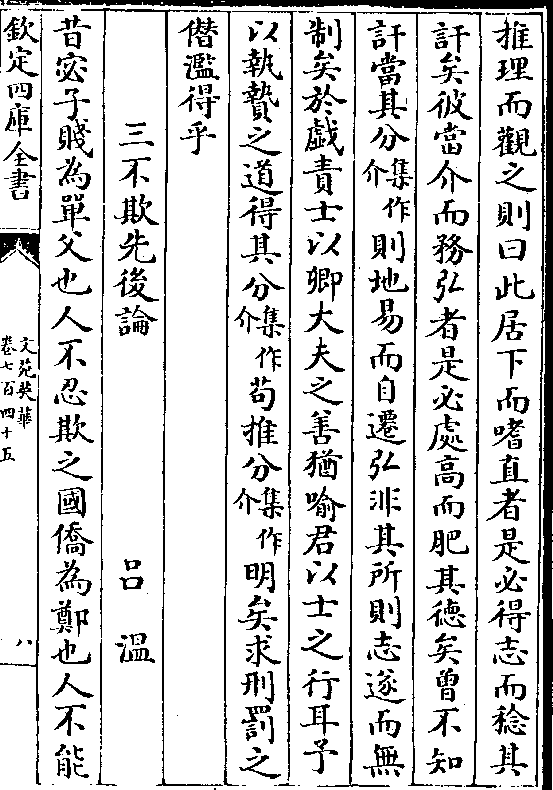 推理而觀之則曰此居下而嗜直者是必得志而稔其
訐矣彼當介而務弘者是必處高而肥其德矣曾不知
訐當其分集作介則地易而自遷弘非其所則志遂而無
制矣於戯責士以卿大夫之善猶喻君以士之行耳予
以執贄之道得其分集作介苟推分集作介明矣求刑罰之
僭濫得乎
三不欺先後論 吕温
昔宓子賤為單父也人不忍欺之國僑為鄭也人不能
欽定四庫全書
文苑英華
卷七百四十五
八